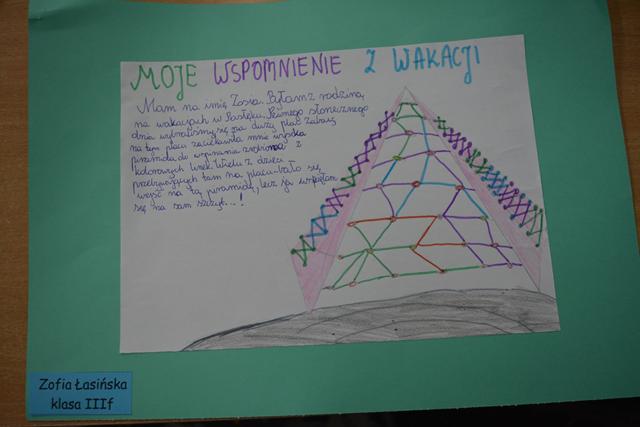 MOJE WSPOMNIENIE Z WAKACJI
Mam na imię Zosia. Byłam z rodziną
na wakacjach w Pasłęku. Pewnego słonecznego
dnia wybraliśmy się na duży plac zabaw,
na tym placu zaciekawiła mnie wysoka
piramida do wspinania zrobiona z
kolorowych linek. Wielu z dzieci
przebywających tam na placu bało się
wejść na tą piramidę, lecz ja wspięłam
się na sam szczyt...!
Zofia Łasińska
klasa IIIf